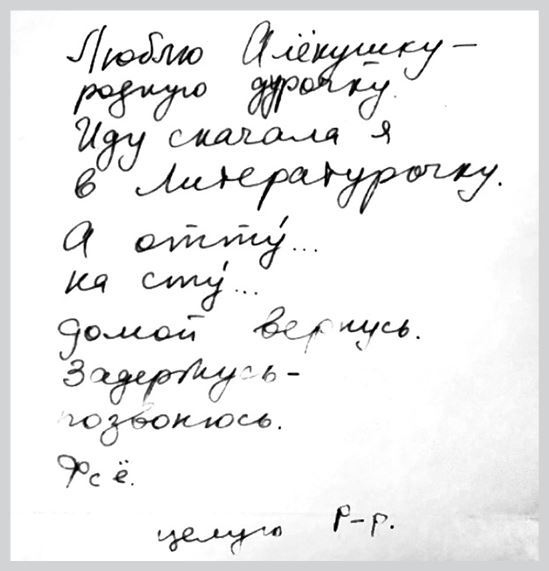 Люблю Алёнушку –
родную дурочку.
Иду сначала я
в Литературочку.
А оттý...
на стý...
домой вернусь.
Задержусь –
позвонюсь.
Фсё.
целую Р-р.